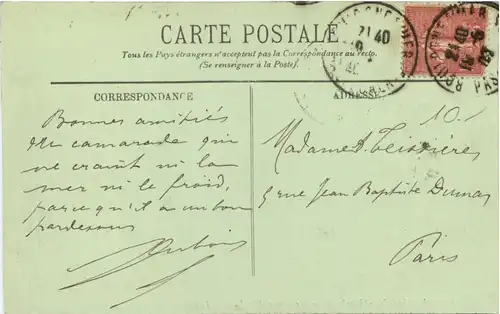 CARTE POSTALE
Tous les Pays étrangers n'acceptent pas la Correspondance au recto.
(Se renseigner à la Poste).
CORRESPONDANCE
ADRESSE
Bonnes amitiés
du camarade qui
ne craint ni la
mer ni le froid,
parce qu'il a un bon
pardessus
Dubois
10
Madame Teissières
5 rue Jean Baptiste Dumas
Paris
21 40